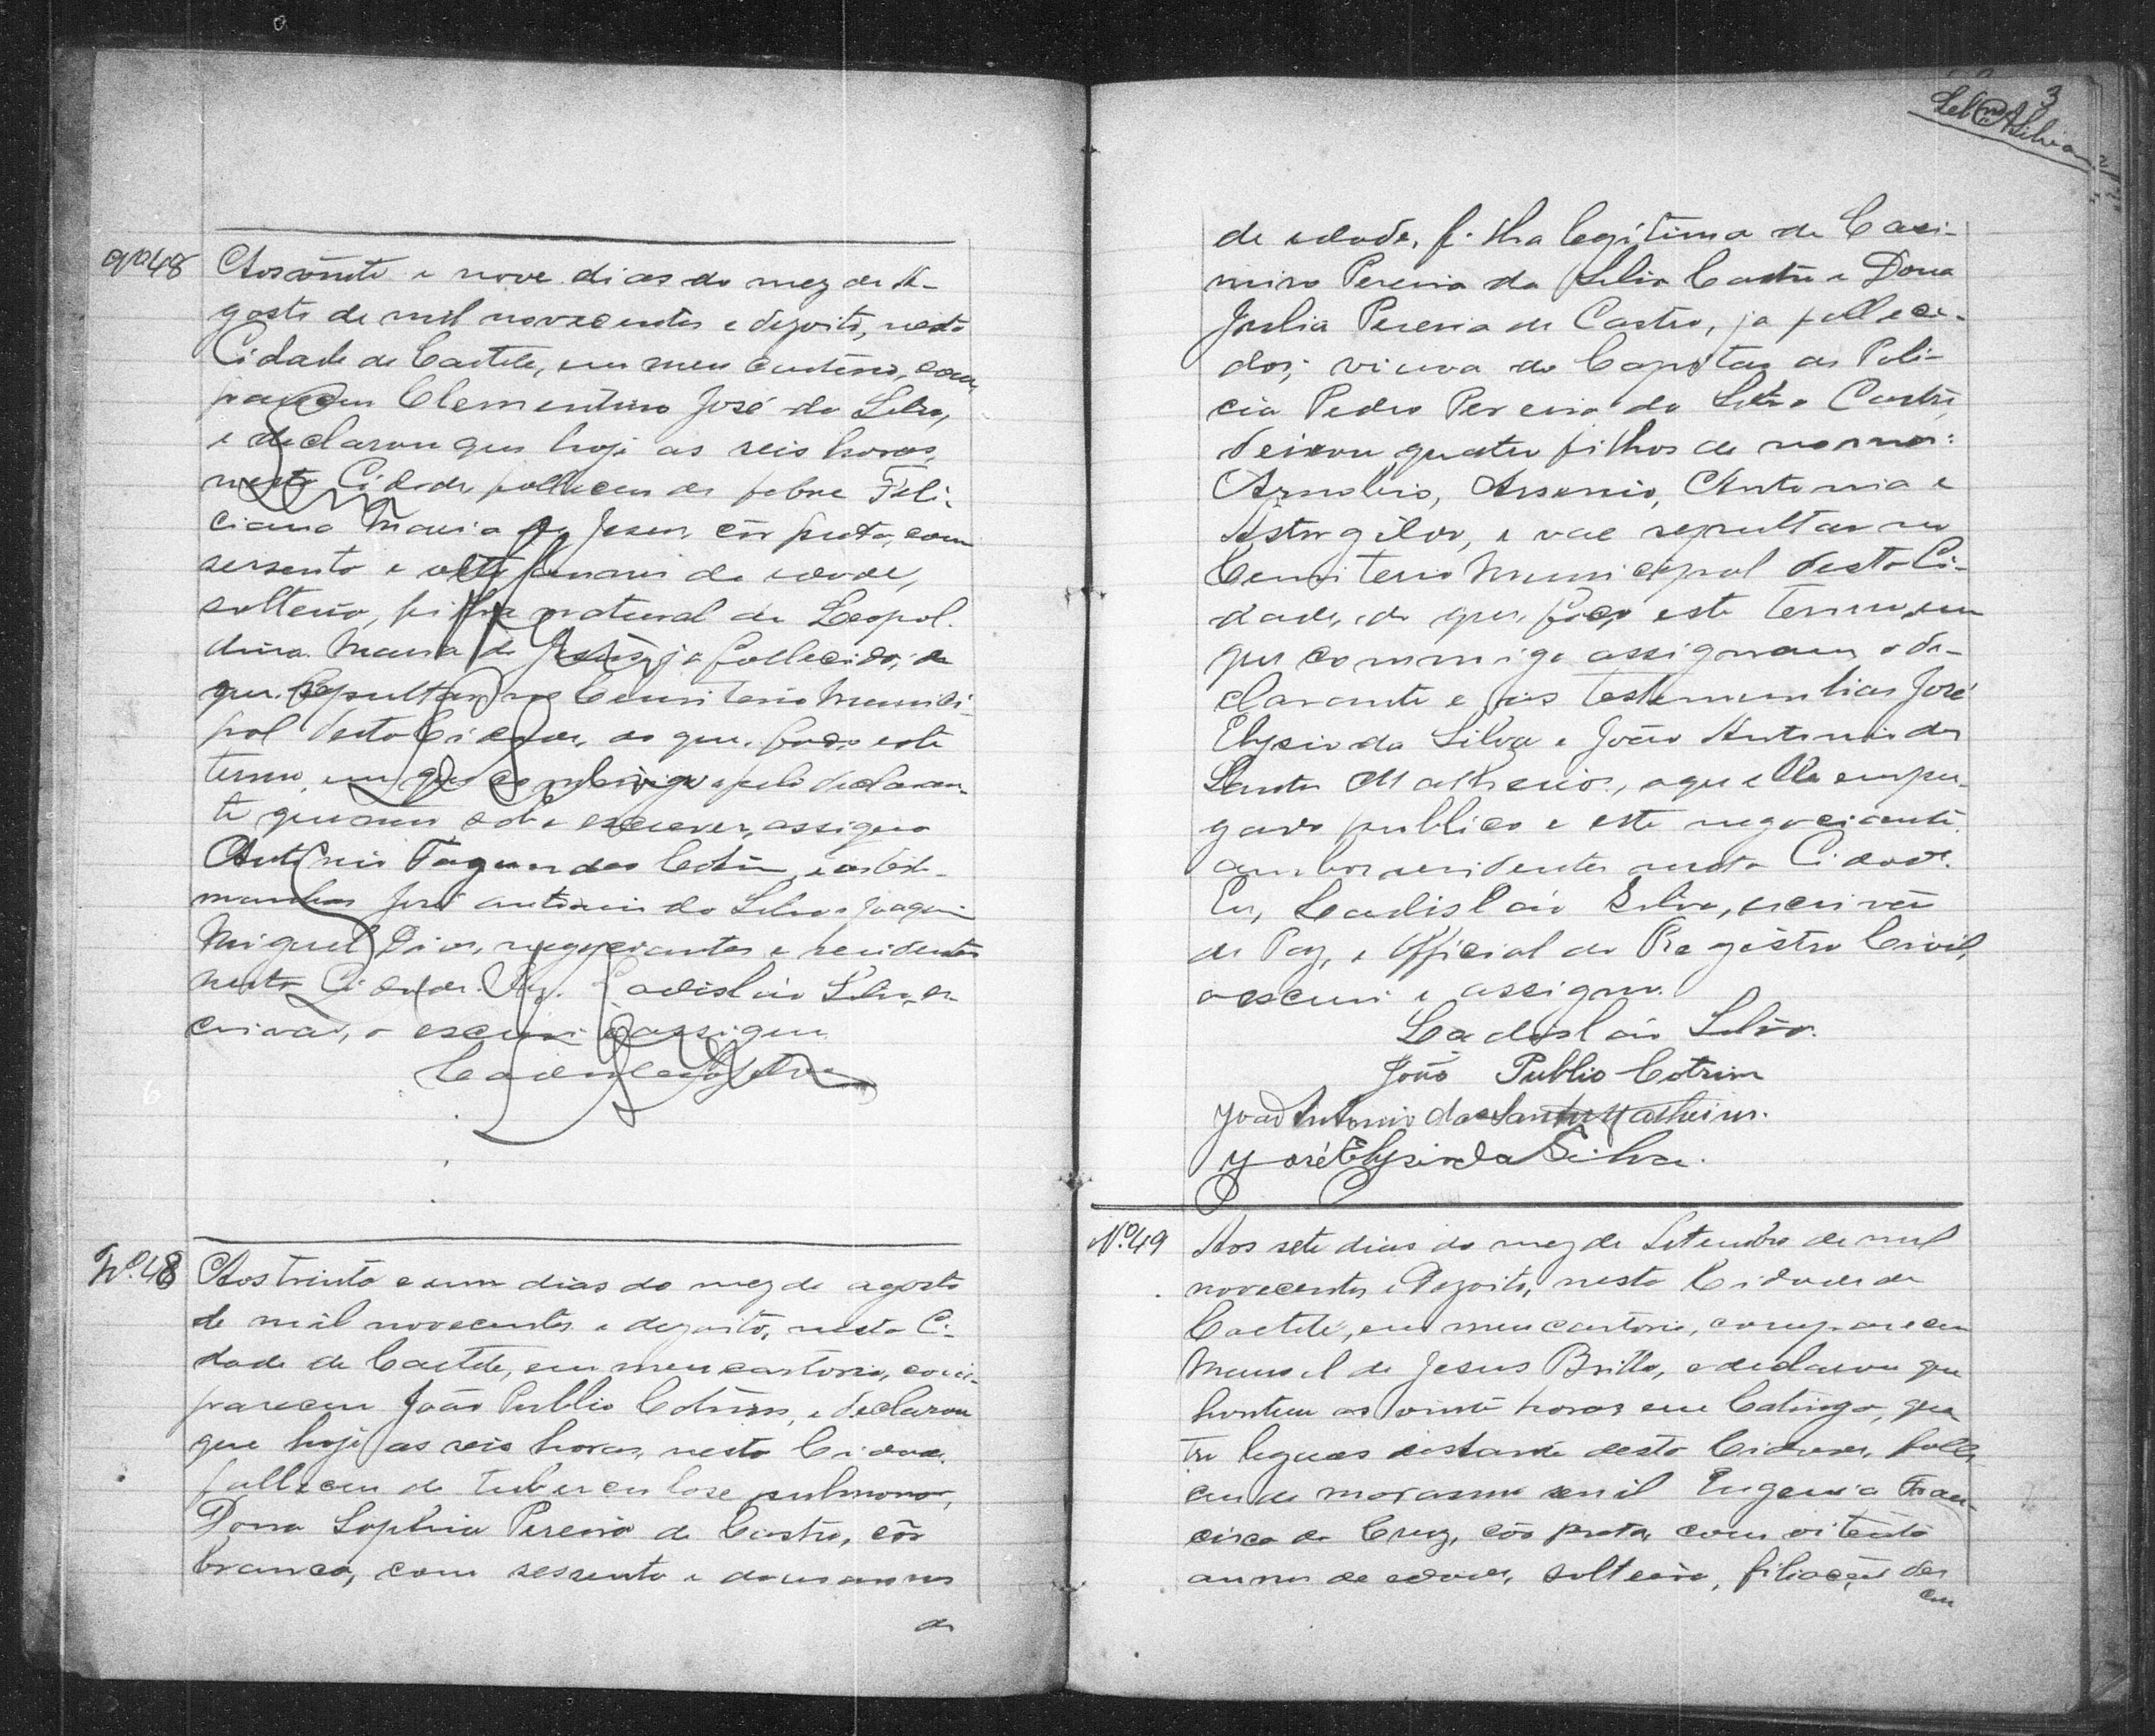 Nº 48
Aos vinte e nove dias do mez de A-
gosto de mil novecentos e dezoito, nesta
Cidade de Caetete, em meu cartorio, com
pareceu Clementino José da Silva,
e declarou que hoje as seis horas,
nesta Cidade falleceu de febre Feli-
ciana Maria de Jesus, côr preta, com
sessenta e annos de edade,
solteira, filha natural de Leopol-
dina Maria de Jesus, ja fallecida,
que sepultar no Cemiterio Munici-
pal desta Cidade, do que, faço este
termo, em que commigo e pelo declaran-
te que não sabe escrever, assigna
Antonio Fagundes Cotrim, e as teste-
munhas José Antonio da Silva e Joaquim
Miguel Dias, negociantes e residentes
nesta Cidade. Eu, Ladisláo Silva, es-
crivão, o escrevi e assigno.
Ladislao Silva
Nº. 48
Aos trinta e um dias do mez de agosto
de mil novecentos e dezoito, nesta Ci-
dade de Caetete, em meu cartorio, com-
pareceu João Publio Cotrim, e declarou
que hoje as seis horas, nesta Cidade,
falleceu de tuberculose pulmonar,
Dona Sophia Pereira de Castro, côr
branca, com sessenta e dous annos
de
3
Silva
de edade, filha legitima de Casi-
miro Pereira da Silva Castro e Dona
Julia Pereira de Castro, ja falleci-
dos; viuva do Capitão de Poli-
cia Pedro Pereira da Silva Castro,
deixou quatro filhos de nomes:
Arnobio, Arsenio, Antonia e
e vae sepultar no
Cemiterio Municipal desta Ci-
dade, do que, faço este termo, em
que commigo assignam o de-
clarante e as testemunhas José
Elysio da Silva e João Antonio dos
Santos Matheiros, aquelle empre-
gado publico e este negociante,
ambos residentes nesta Cidade.
Eu, Ladisláo Silva, escrivão
de Paz, e Official do Registro Civil,
o escrevi e assigno.
Ladisláo Silva.
João Publio Cotrim
João Antonio dos Santos Matheiros.
José Elysio da Silva.
Nº. 49
Aos sete dias do mez de Setembro de mil
novecentos e dezoito, nesta Cidade de
Caeteté, em meu cartorio, compareceu
Manoel de Jesus Britto, e declarou que
hontem as vinte horas em Catinga, qua
tro leguas distante desta Cidade, falle
ceu de marasmo senil Eugenia Fran-
cisca da Cruz, côr preta, com oitenta
annos de edade, solteira, filiação des
con